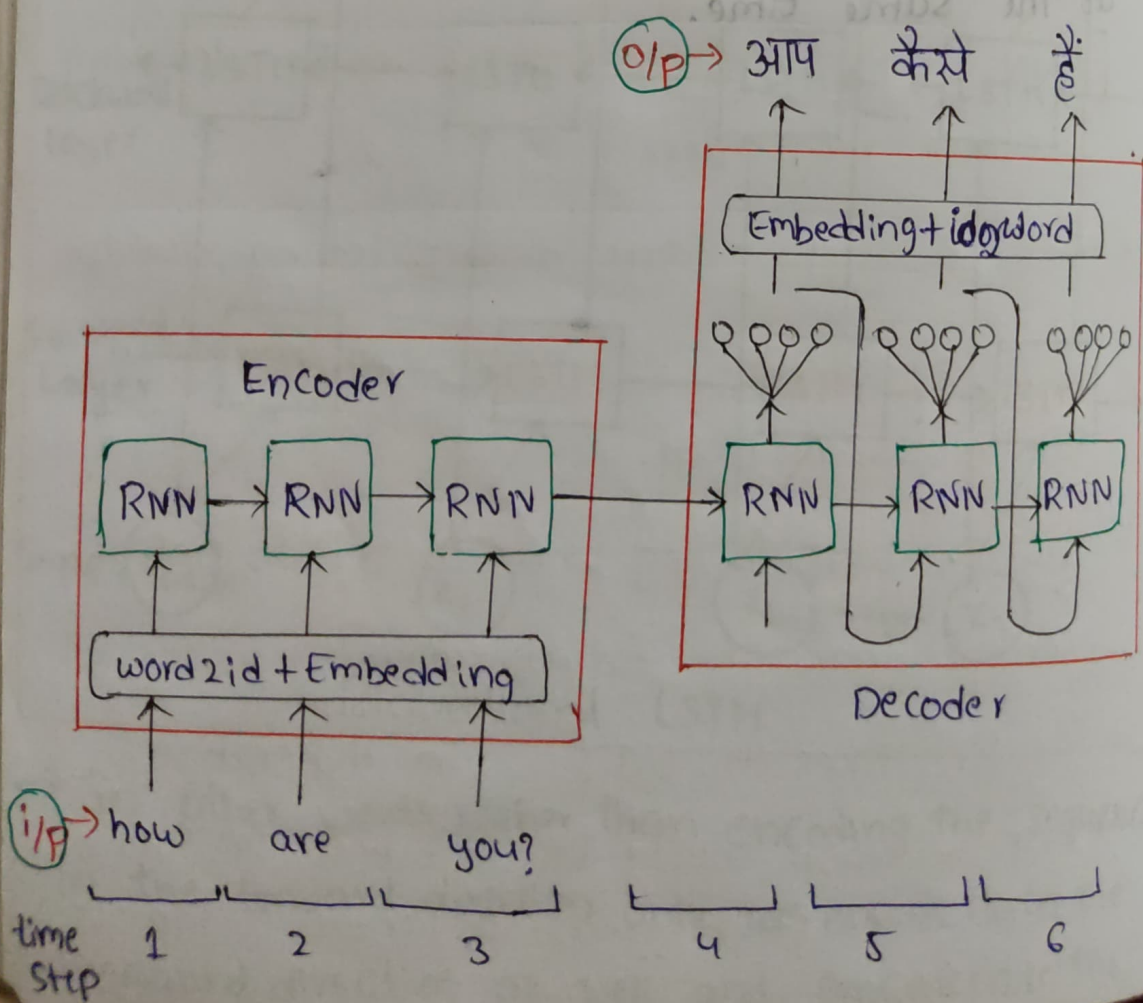 O/p → आप कैसे हैं
Embedding + id2word
Encoder
RNN RNN RNN RNN RNN RNN
word2id + Embedding
Decoder
i/p → how are you?
time step 1 2 3 4 5 6